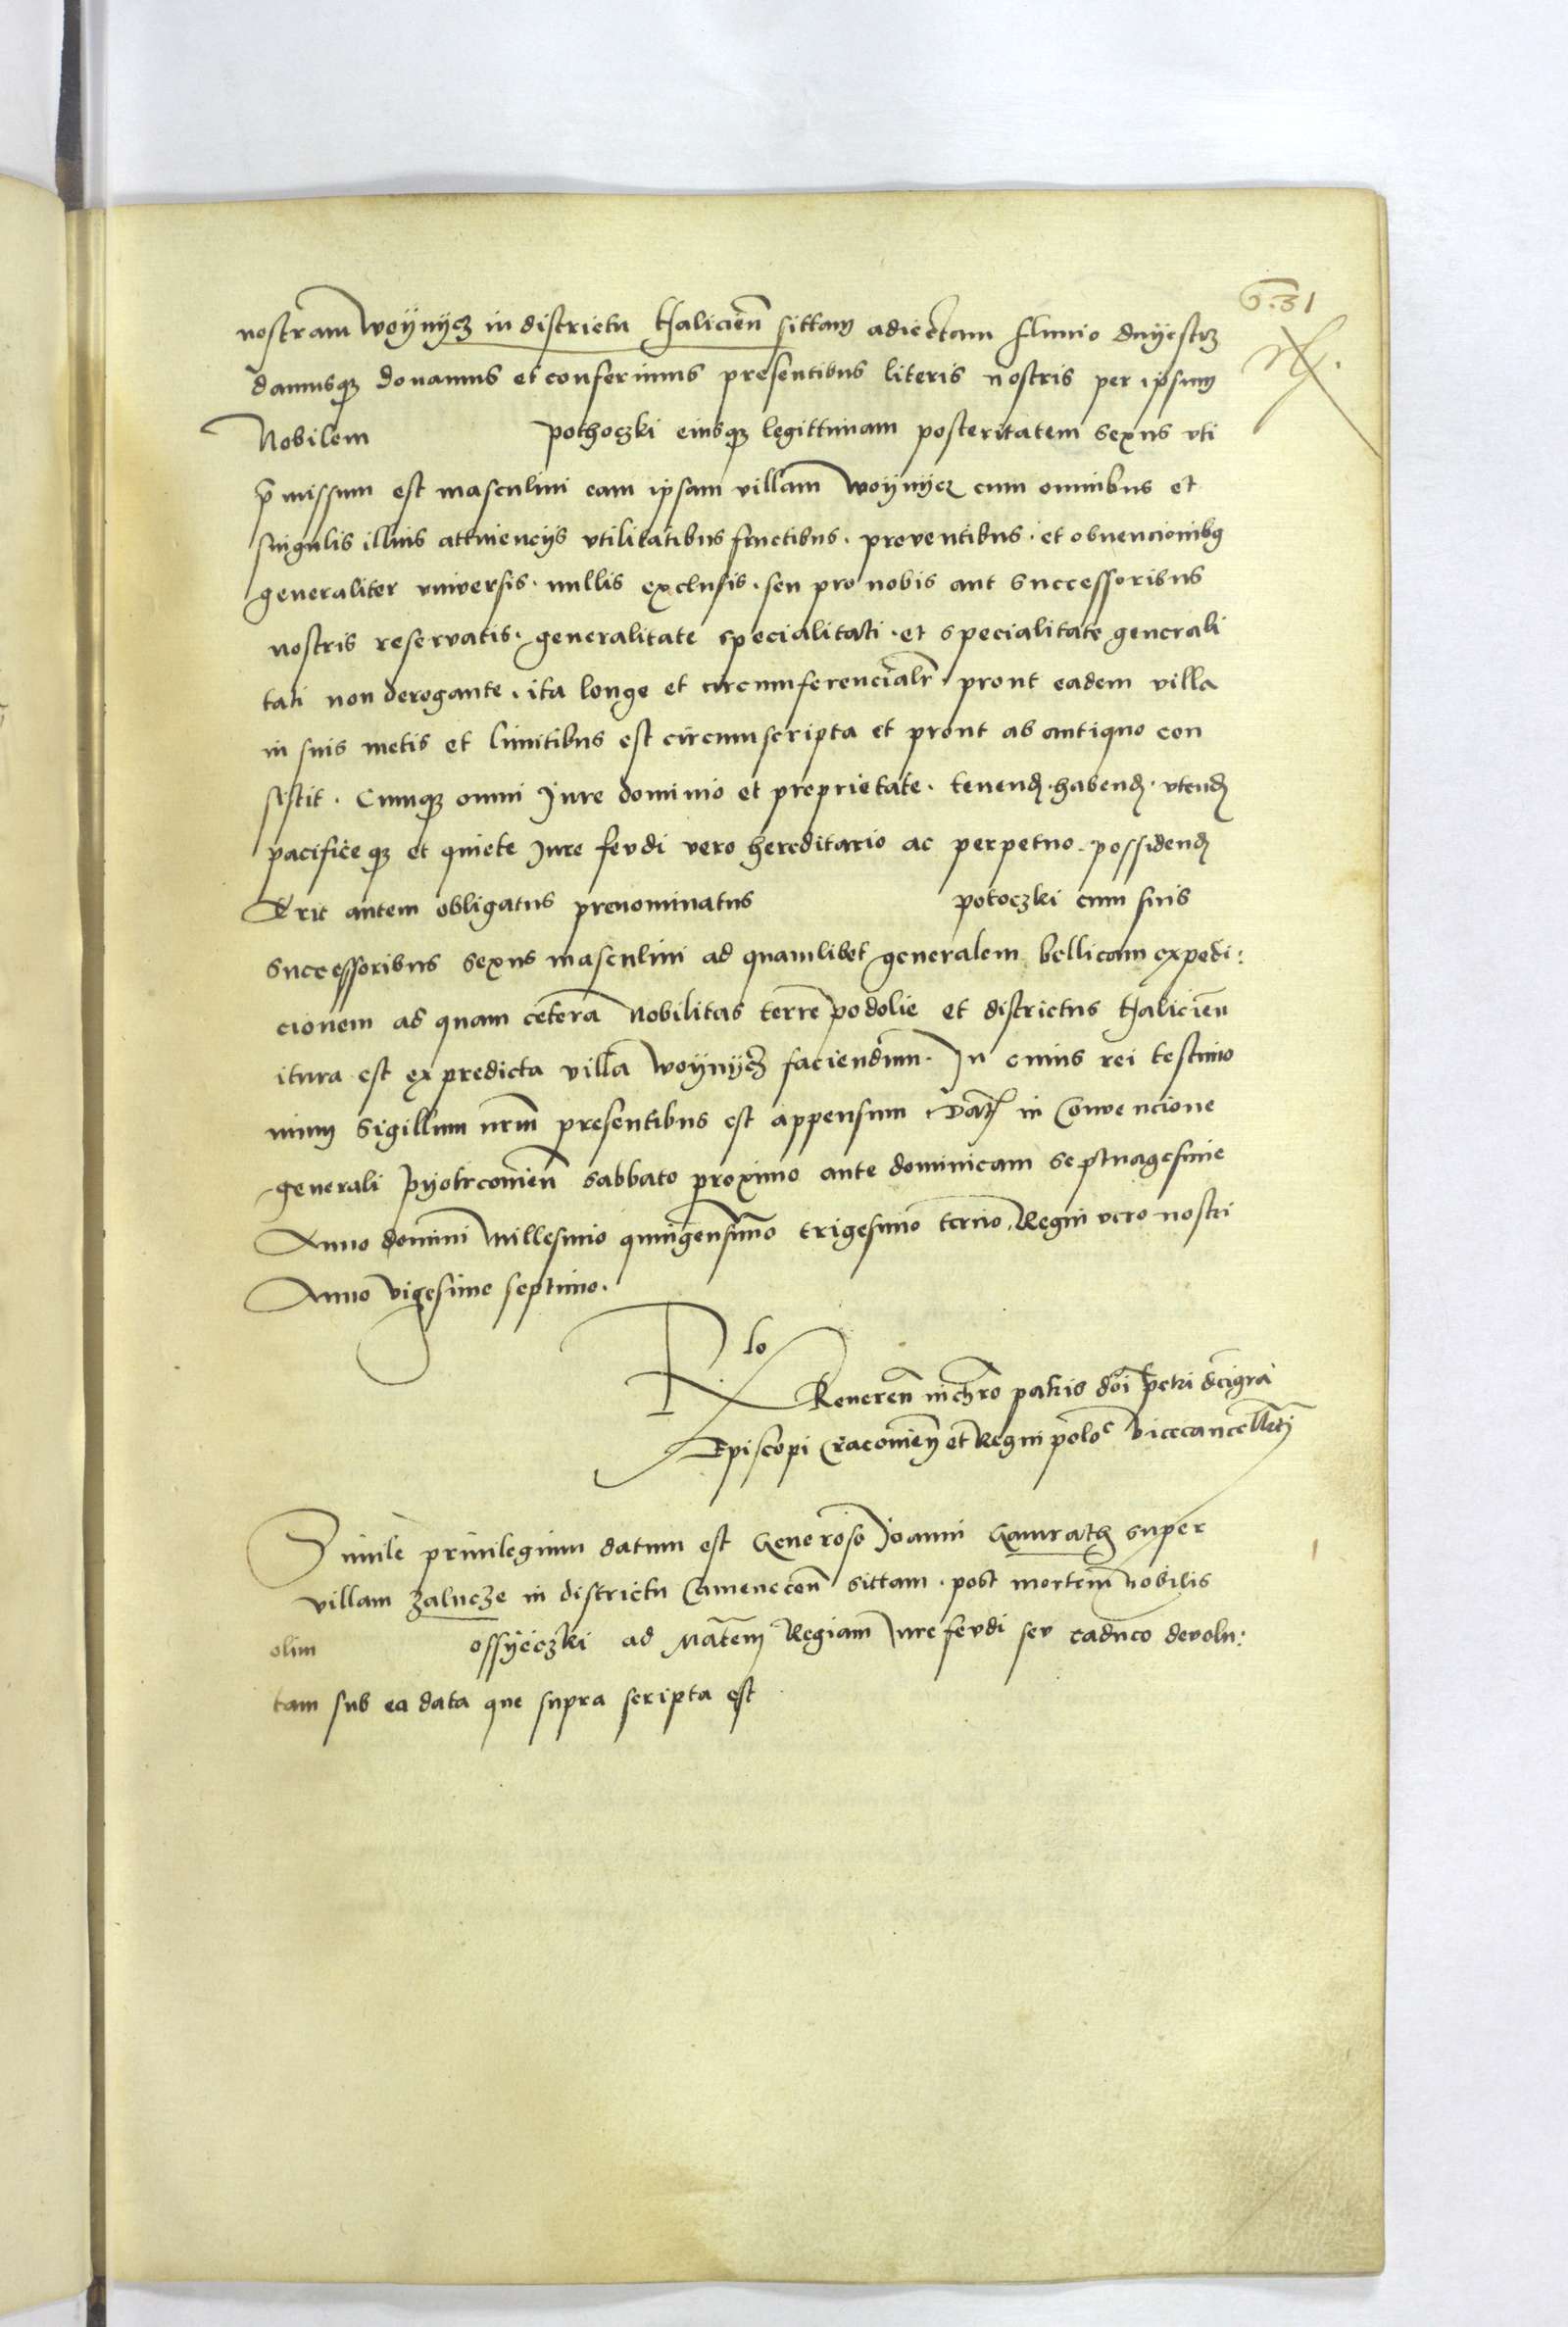 nostram Woynycz in districtu Halicien̄ sittam adiectam fluuio dnyestrz
damusqꝫ donamus et conferimus presentibus literis nostris per ipsum
Nobilem pothoczki eiusqꝫ legittimam posteritatem sexus vti
p̄missum est masculini eam ipsam villam Woynycz cum omnibus et
singulis illius attinencijs vtilitatibus fructibus . proventibus . et obuencionibꝯ
generaliter vniversis . nullis exclusis . seu pro nobis aut successoribus
nostris reservatis . generalitate specialitati . et specialitate generali
tati non derogante . ita longe et circumferencialr̄ prout eadem villa
in suis metis et limitibus est circumscripta et prout ab antiquo con
sistit . Cumqꝫ omni Jure dominio et proprietate . tenend̄ . habend̄ . vtend̄
pacifice qꝫ et quiete Jure fevdi vero hereditario ac perpetuo . possidend̄
Erit autem obligatus prenominatus potoczki cum suis
successoribus sexus masculini ad quamlibet generalem bellicam expedi:
cionem ad quam cetera Nobilitas terre podolie et districtus Halicien̄
itura est ex predicta villa Woynycz faciendum . In cuius rei testimo
nium Sigillum nrm̄ presentibus est appensum Dat̄ in Convencione
generali Pyotrconien̄ sabbato proximo ante dominicam septuagesime
Anno domini Millesimo quingensimo trigesimo tercio . Regni vero nostri
Anno vigesimo septimo .
Rlo
Reueren̄ in chro patris dōi Petri dei gra
Episcopi Cracouien̄ et Regni polo Vicecancellarij
Simile priuilegium datum est Generoso Joanni super
villam Zalucze in districtu Camenecen̄ sittam . post mortem nobilis
olim ossyeczki ad Matem Regiam Jure fevdi sev caduco devolu:
tam sub ea data que supra scripta est